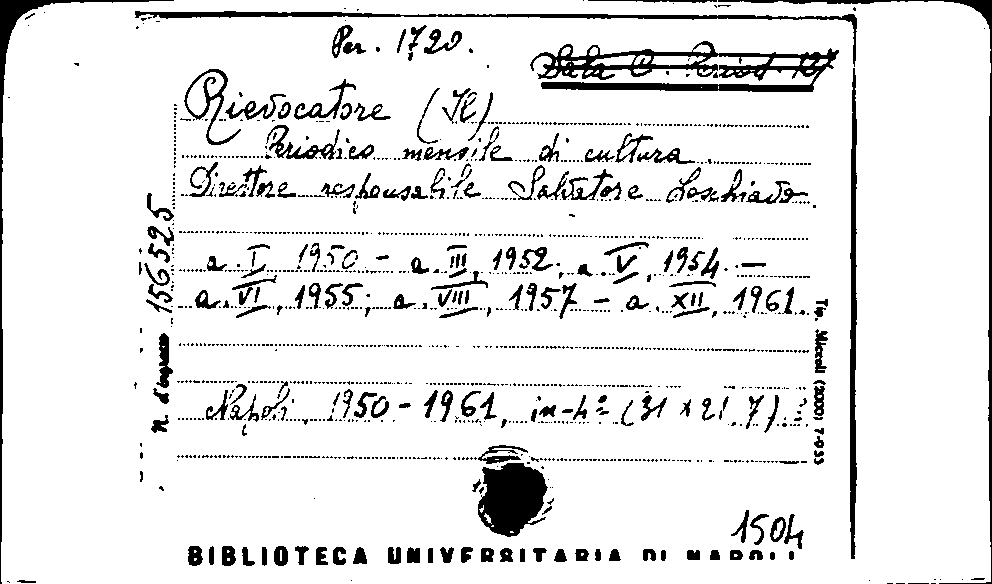 Per. 1720.
Sala C. Period. 127
Rievocatore (Il)
Periodico mensile di cultura.
Direttore responsabile Salvatore Loschiavo.
a. I, 1950 - a. III, 1952; a. V, 1954 -
a. VI, 1955; a. VIII, 1957 - a. XII, 1961.
Napoli, 1950-1961, in-4º (31 x 21,7).
N. d'ingresso 156525
Tip. Miccoli (2000) 7-953
1504
BIBLIOTECA UNIVERSITARIA DI NAPOLI